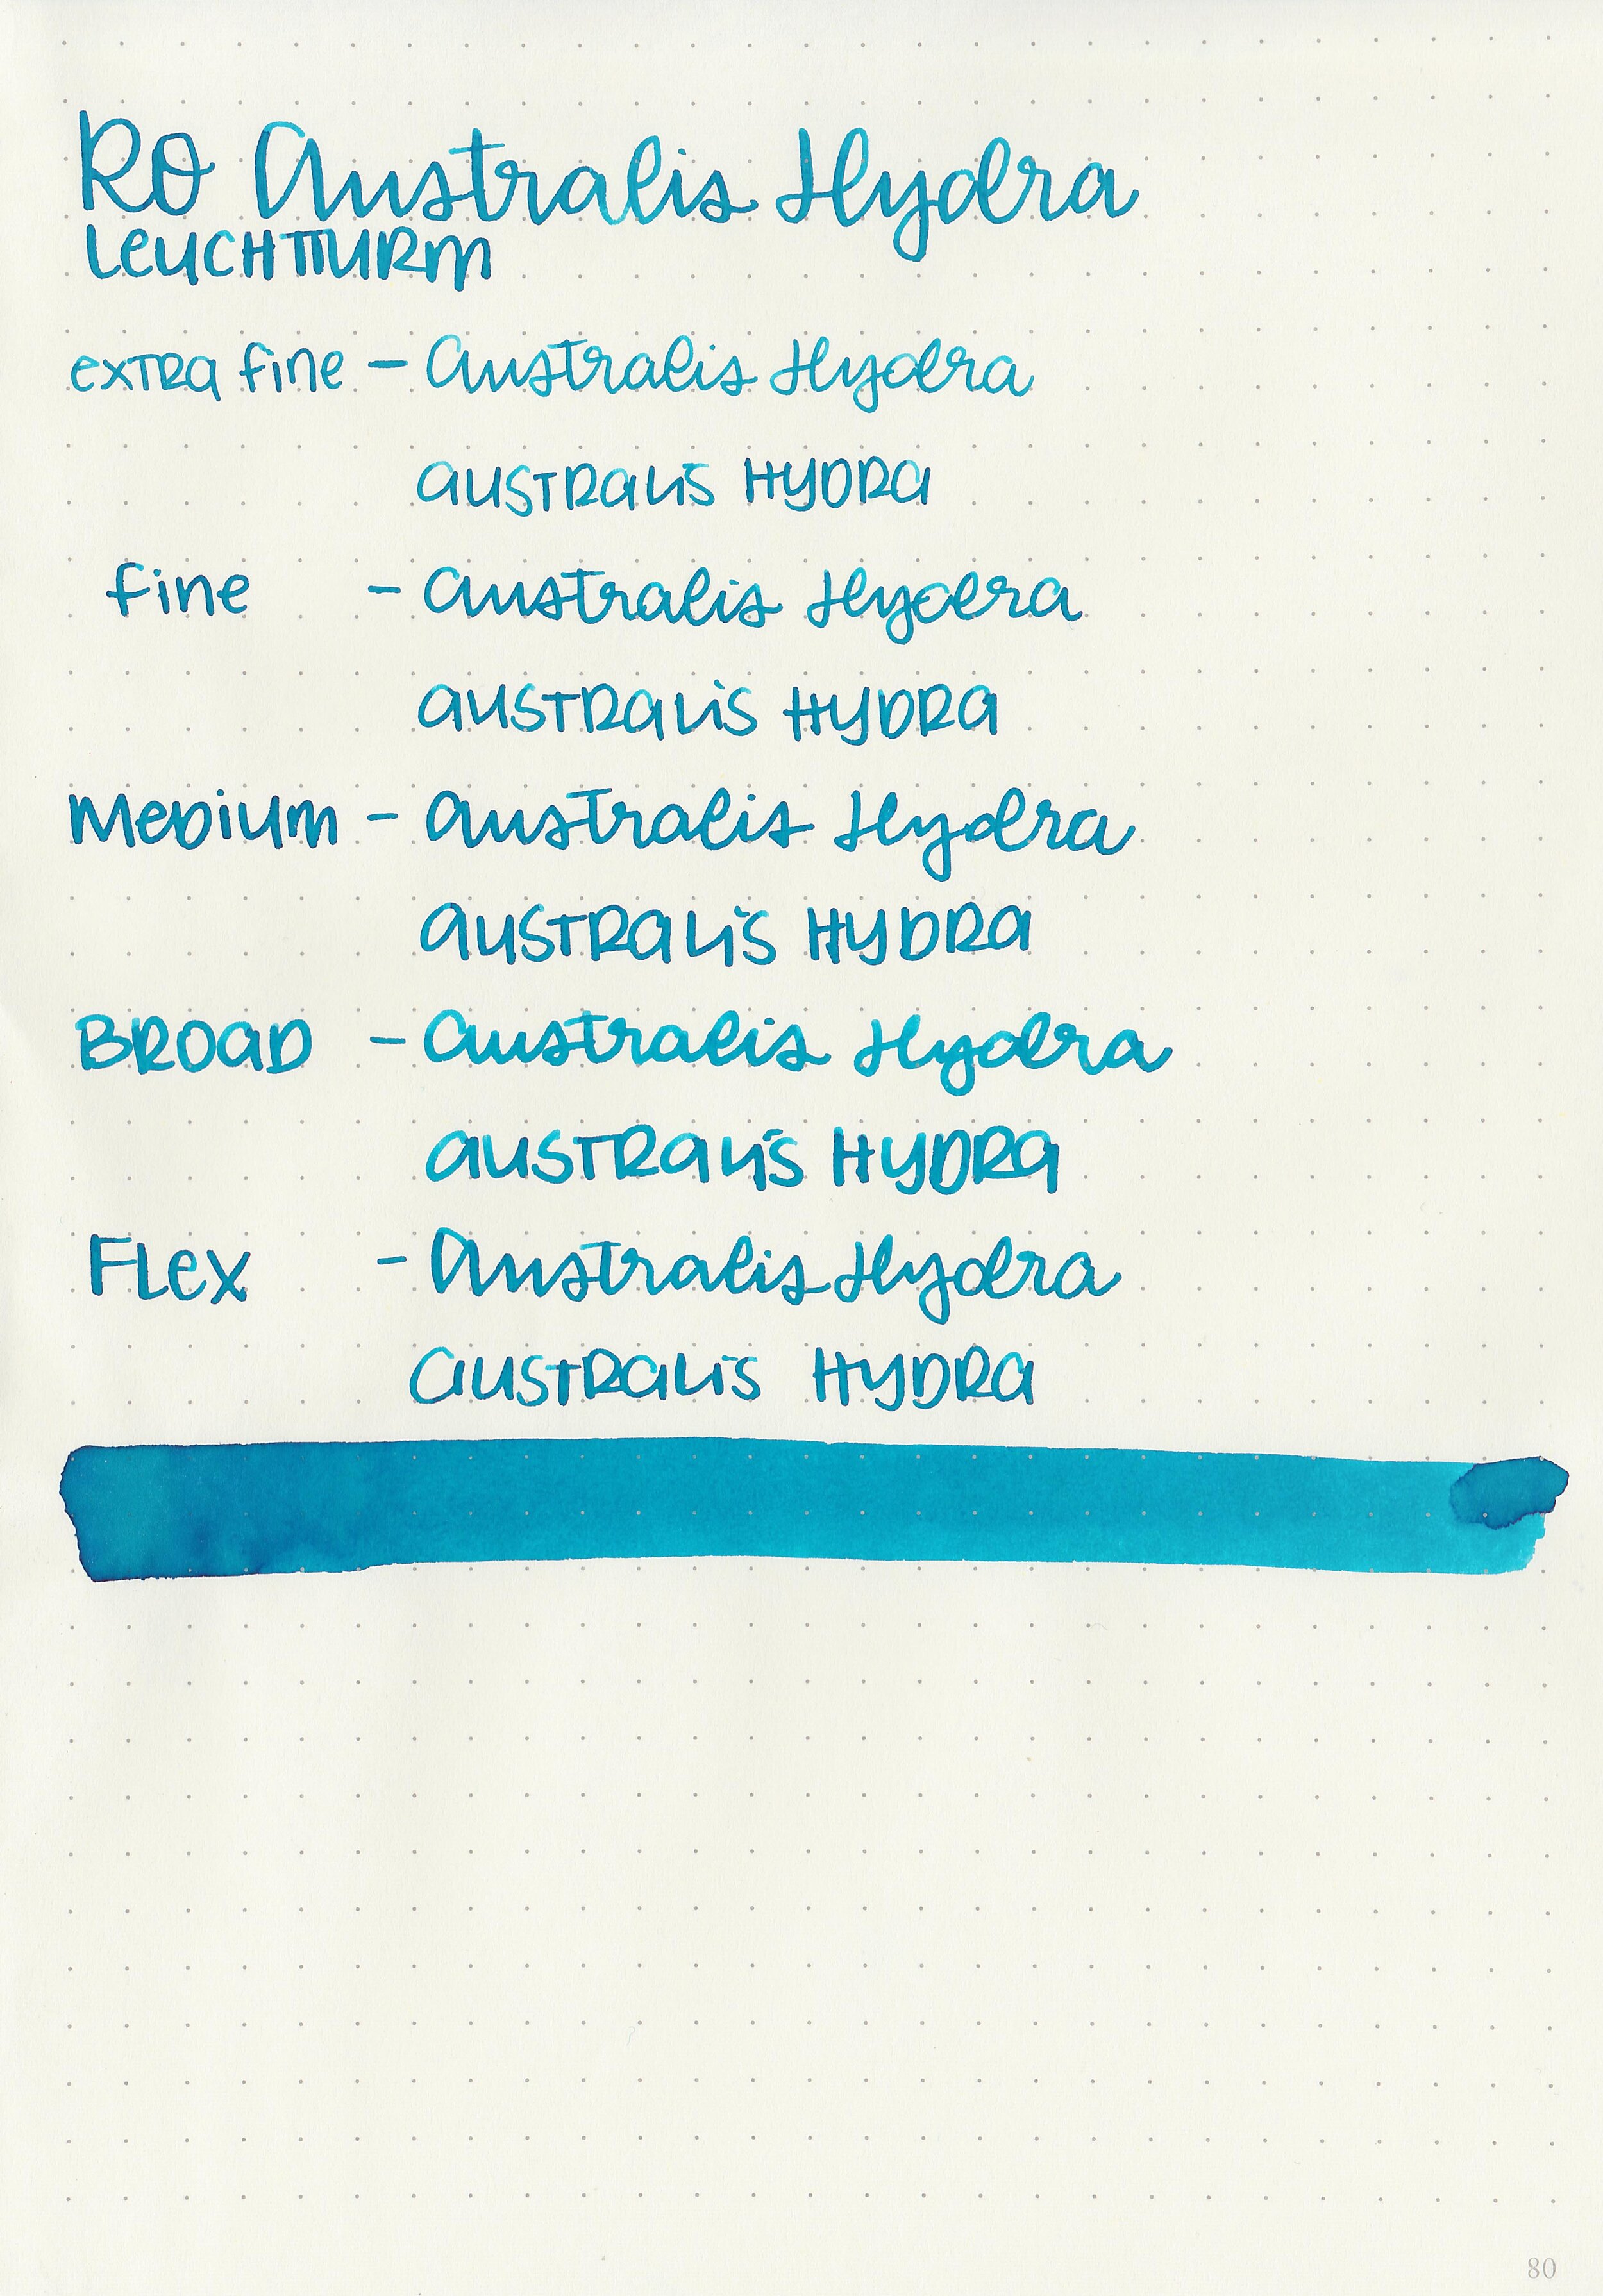 RO Australis Hydra
LEUCHTTURM
extra fine - Australis Hydra
AUSTRALIS HYDRA
fine - Australis Hydra
AUSTRALIS HYDRA
Medium - Australis Hydra
AUSTRALIS HYDRA
BROAD - Australis Hydra
AUSTRALIS HYDRA
Flex - Australis Hydra
AUSTRALIS HYDRA
80